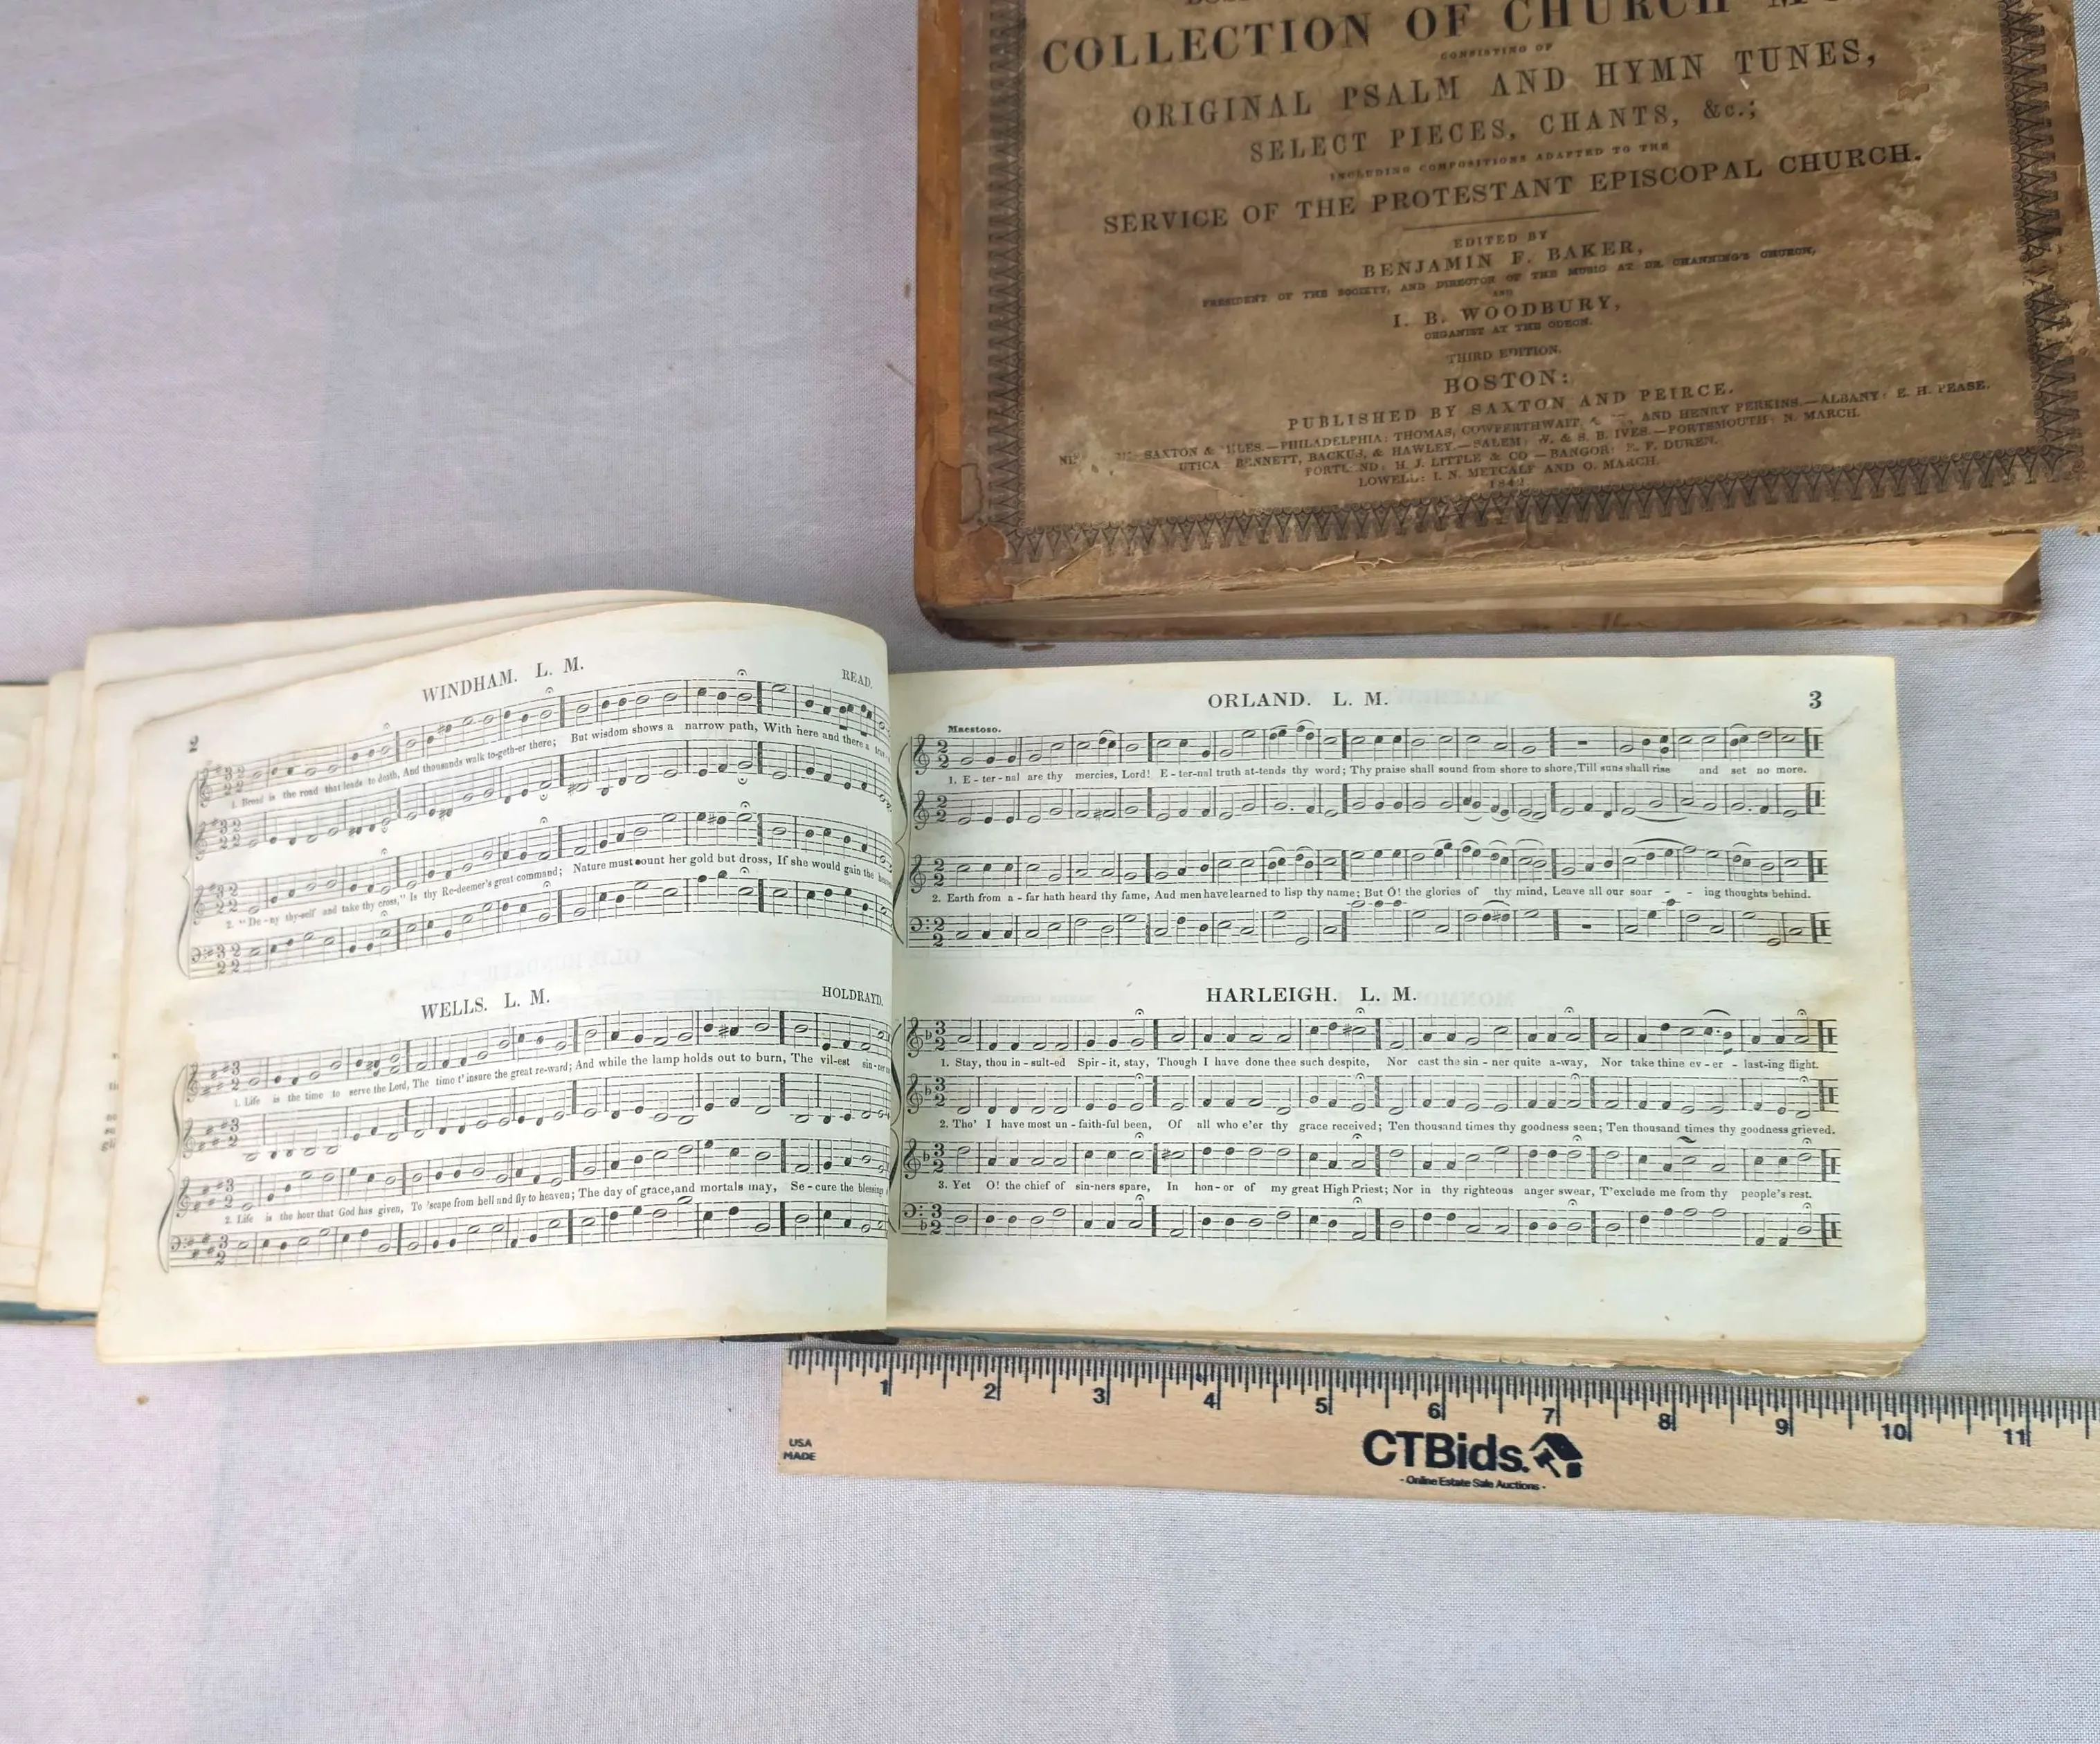 COLLECTION OF CHURCH
CONSISTING OF
ORIGINAL PSALM AND HYMN TUNES,
SELECT PIECES, CHANTS, &c.;
INCLUDING COMPOSITIONS ADAPTED TO THE
SERVICE OF THE PROTESTANT EPISCOPAL CHURCH.
EDITED BY
BENJAMIN F. BAKER,
PRESIDENT OF THE SOCIETY, AND DIRECTOR OF THE MUSIC AT DR. CHANNING'S CHURCH,
AND
I. B. WOODBURY,
ORGANIST AT THE ODEON.
THIRD EDITION.
BOSTON:
PUBLISHED BY SAXTON AND PEIRCE.
SAXTON & MILES.—PHILADELPHIA: THOMAS, COWPERTHWAIT, & AND HENRY PERKINS.—ALBANY: E. H. PEASE.
UTICA BENNETT, BACKUS, & HAWLEY.—SALEM: W. & S. B. IVES.—PORTSMOUTH: N. MARCH.
PORTLAND: H. J. LITTLE & CO—BANGOR: E. F. DUREN.
LOWELL: I. N. METCALF AND O. MARCH.
2
WINDHAM. L. M.
READ.
1. Broad is the road that leads to death, And thousands walk to-geth-er there; But wisdom shows a narrow path, With here and there a
2. "De-ny thy-self and take thy cross," Is thy Re-deemer's great command; Nature must count her gold but dross, If she would gain the
WELLS. L. M.
HOLDRAYD.
1. Life is the time to serve the Lord, The time t' insure the great re-ward; And while the lamp holds out to burn, The vil-est sin-ner
2. Life is the hour that God has given, To 'scape from hell and fly to heaven; The day of grace, and mortals may, Se-cure the blessings
ORLAND. L. M.
3
Maestoso.
1. E-ter-nal are thy mercies, Lord! E-ter-nal truth at-tends thy word; Thy praise shall sound from shore to shore, Till suns shall rise and set no more.
2. Earth from a-far hath heard thy fame, And men have learned to lisp thy name; But O! the glories of thy mind, Leave all our soar - - ing thoughts behind.
HARLEIGH. L. M.
1. Stay, thou in-sult-ed Spir-it, stay, Though I have done thee such despite, Nor cast the sin-ner quite a-way, Nor take thine ev-er-last-ing flight.
2. Tho' I have most un-faith-ful been, Of all who e'er thy grace received; Ten thousand times thy goodness seen; Ten thousand times thy goodness grieved.
3. Yet O! the chief of sin-ners spare, In hon-or of my great High Priest; Nor in thy righteous anger swear, T'exclude me from thy people's rest.
1 2 3 4 5 6 7 8 9 10 11
USA
MADE
CTBids.
- Online Estate Sale Auctions -